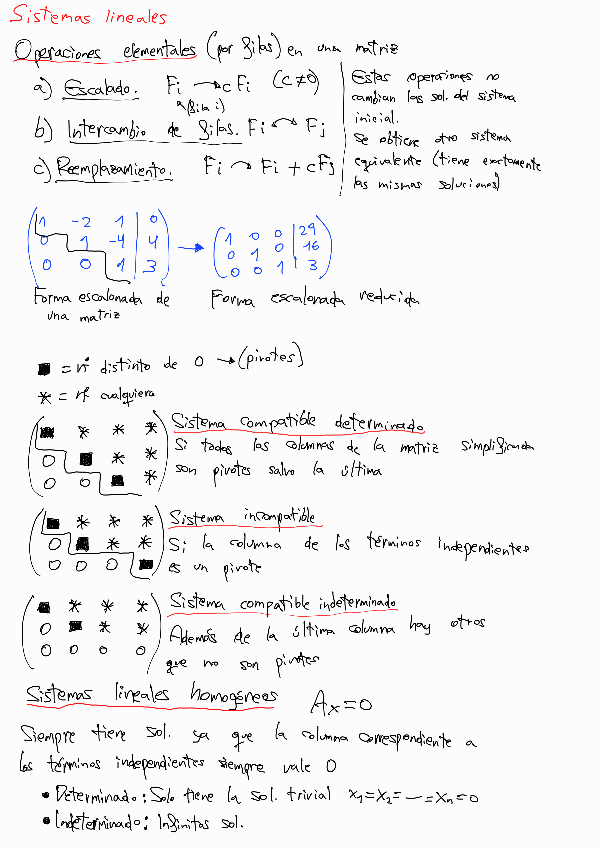 Sistemas lineales
Operaciones elementales (por filas) en una matriz
a) Escalado. Fi → cFi (c≠0)
(fila i)
b) Intercambio de filas. Fi ↔ Fj
c) Reemplazamiento. Fi → Fi + cFj
Estas operaciones no
cambian las sol. del sistema
inicial.
Se obtiene otro sistema
equivalente (tiene exactamente
las mismas soluciones)
1 -2 1 | 0
0 1 -4 | 4
0 0 1 | 3
→
1 0 0 | 29
0 1 0 | 16
0 0 1 | 3
Forma escalonada de
una matriz
Forma escalonada reducida
■ = nº distinto de 0 → (pivotes)
* = nº cualquiera
■ * * *
0 ■ * *
0 0 ■ *
Sistema compatible determinado
Si todas las columnas de la matriz simplificada
son pivotes salvo la última
■ * * *
0 ■ * *
0 0 0 ■
Sistema incompatible
Si la columna de los términos independientes
es un pivote
■ * * *
0 ■ * *
0 0 0 0
Sistema compatible indeterminado
Además de la última columna hay otros
que no son pivotes
Sistemas lineales homogéneos Ax=0
Siempre tiene sol. ya que la columna correspondiente a
los términos independientes siempre vale 0
• Determinado: Solo tiene la sol. trivial x1=x2=—=xn=0
• Indeterminado: Infinitas sol.